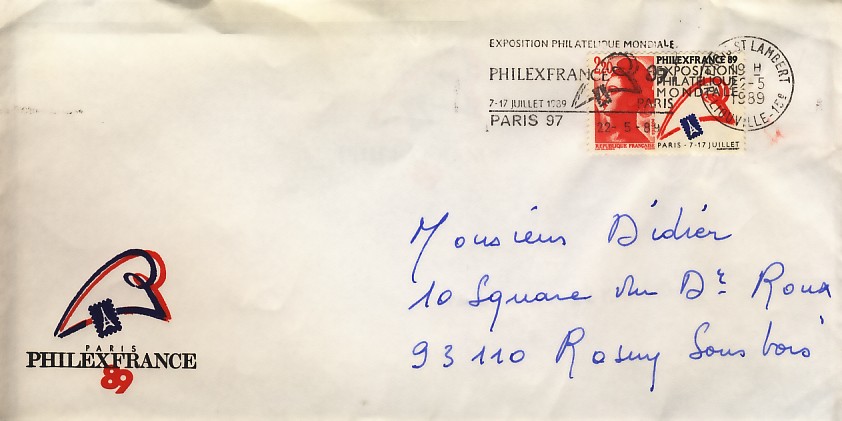 EXPOSITION PHILATELIQUE MONDIALE
PHILEXFRANCE 89
7-17 JUILLET 1989
PARIS
PARIS 97
22-5-89
2,20
REPUBLIQUE FRANÇAISE
PHILEXFRANCE 89
EXPOSITION
PHILATELIQUE
MONDIALE
PARIS - 7-17 JUILLET
ST LAMBERT
19 H
22-5
1989
Monsieur Didier
10 Square du Dr Roux
93110 Rosny Sous bois
PARIS
PHILEXFRANCE
89